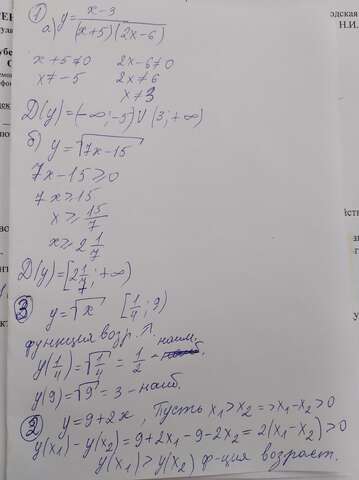 ① a) y = x-3 / (x+5)(2x-6)
x+5≠0 2x-6≠0
x≠-5 2x≠6
x≠3
D(y)=(-∞;-5)∪(3;+∞)
б) y=√7x-15
7x-15≥0
7x≥15
x≥15/7
x≥2 1/7
D(y)=[2 1/7;+∞)
③ y=√x [1/4; 9)
функция возр. П.
y(1/4)=√1/4=1/2 - наим.
y(9)=√9=3-наиб.
② y=9+2x, Пусть x₁>x₂=>x₁-x₂>0
y(x₁)-y(x₂)=9+2x₁-9-2x₂=2(x₁-x₂)>0
y(x₁)>y(x₂) ф-ция возраст.